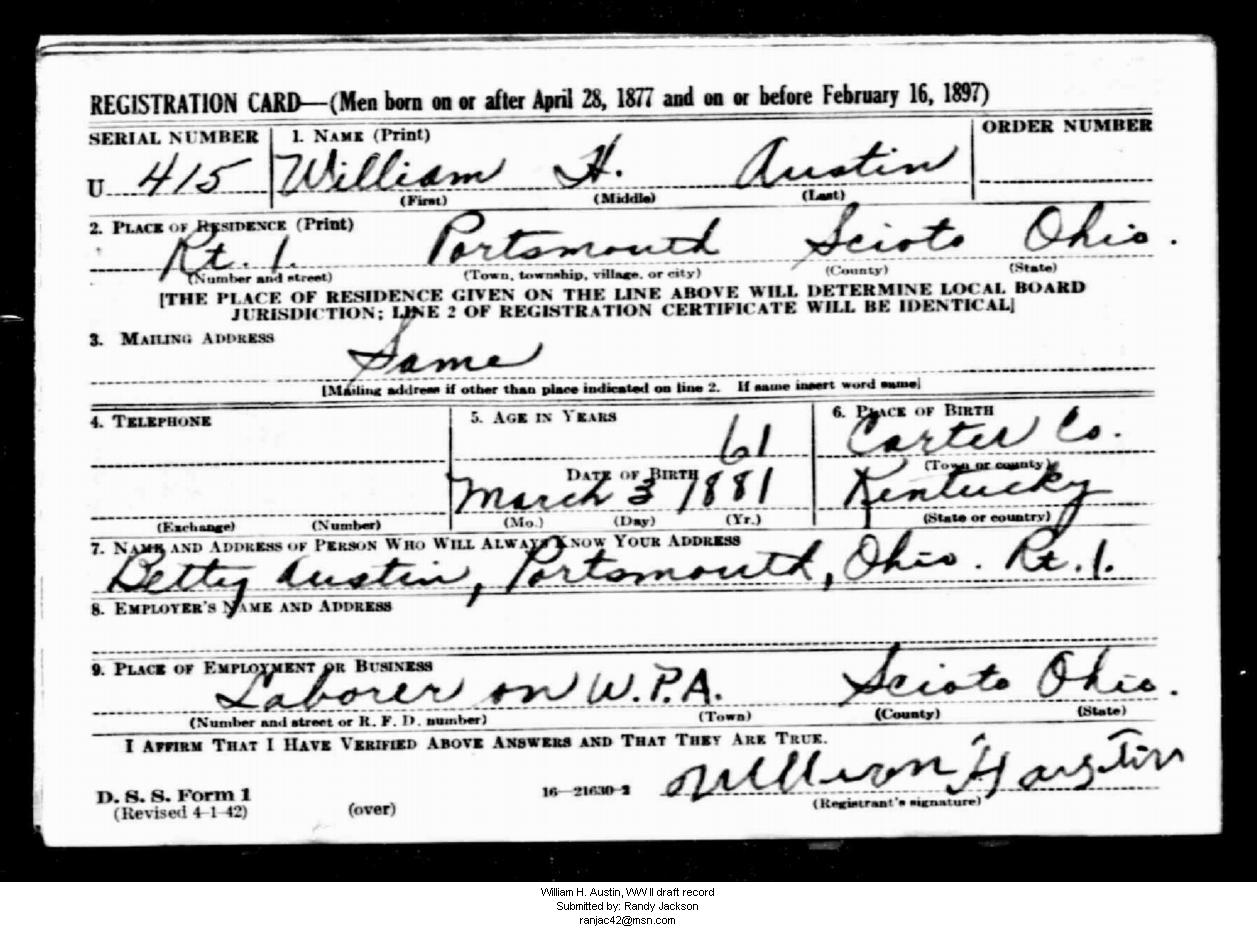 REGISTRATION CARD—(Men born on or after April 28, 1877 and on or before February 16, 1897)
SERIAL NUMBER 1. NAME (Print) ORDER NUMBER
U 415 William H. Austin
(First) (Middle) (Last)
2. PLACE OF RESIDENCE (Print)
Rt. 1. Portsmouth Scioto Ohio.
(Number and street) (Town, township, village, or city) (County) (State)
[THE PLACE OF RESIDENCE GIVEN ON THE LINE ABOVE WILL DETERMINE LOCAL BOARD
JURISDICTION; LINE 2 OF REGISTRATION CERTIFICATE WILL BE IDENTICAL]
3. MAILING ADDRESS
Same
[Mailing address if other than place indicated on line 2. If same insert word same]
4. TELEPHONE 5. AGE IN YEARS 6. PLACE OF BIRTH
61 Carter Co.
DATE OF BIRTH (Town or county)
March 3 1881 Kentucky
(Exchange) (Number) (Mo.) (Day) (Yr.) (State or country)
7. NAME AND ADDRESS OF PERSON WHO WILL ALWAYS KNOW YOUR ADDRESS
Betty Austin, Portsmouth, Ohio. Rt. 1.
8. EMPLOYER'S NAME AND ADDRESS
9. PLACE OF EMPLOYMENT OR BUSINESS
Laborer on W.P.A. Scioto Ohio.
(Number and street or R. F. D. number) (Town) (County) (State)
I AFFIRM THAT I HAVE VERIFIED ABOVE ANSWERS AND THAT THEY ARE TRUE.
William H Austin
D. S. S. Form 1 16—21630-2 (Registrant's signature)
(Revised 4-1-42) (over)
William H. Austin, WW II draft record
Submitted by: Randy Jackson
ranjac42@msn.com